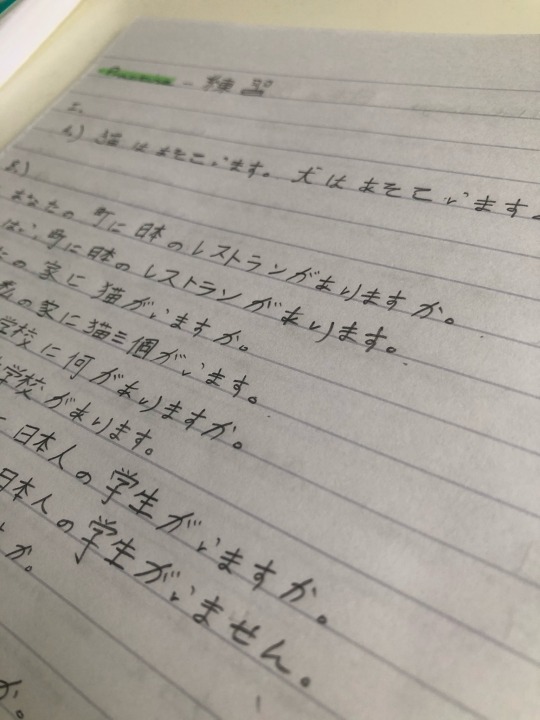 - 練習
I.
A.) 猫はあそこいます。犬はあそこいます。
B.)
あなたの町に日本のレストランがありますか。
はい、町に日本のレストランがあります。
の家に猫がいますか。
私の家に猫三個がいます。
学校に何がありますか。
学校があります。
に日本人の学生がいますか。
日本人の学生がいません。
か。
か。